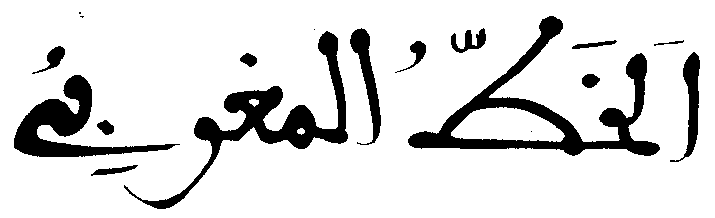 اَلخَطُّ المَغرِبيُ